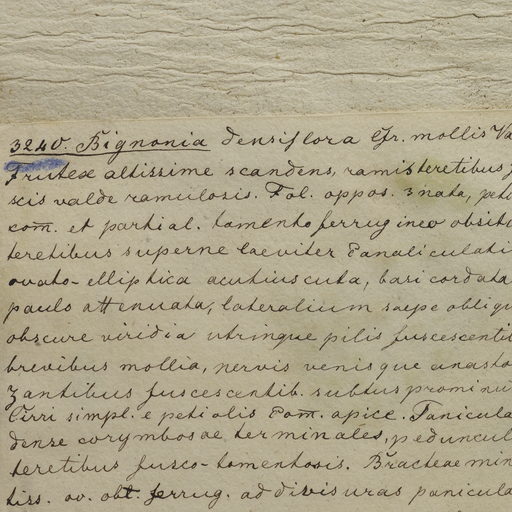 3240. Bignonia densiflora Cfr. mollis Va
Frutex altissime scandens, ramis teretibus f
scis valde ramulosis. Fol. oppos. 3nata, peti
com̅. et partial. tomento ferrugineo obsito
teretibus superne laeviter canaliculati
ovato-elliptica acutiuscula, basi cordata
paulo attenuata, lateralium saepe obliqu
obscure viridia utrinque pilis fuscescentib
brevibus mollia, nervis venisque anasto
zantibus fuscescentib. subtus prominu
Cirri simpl. e petiolis com̅. apice. Panicula
dense corymbosae terminales, peduncul
teretibus fusco-tomentosis. Bracteae min
tiss. ov. obt. ferrug. ad divisuras panicula